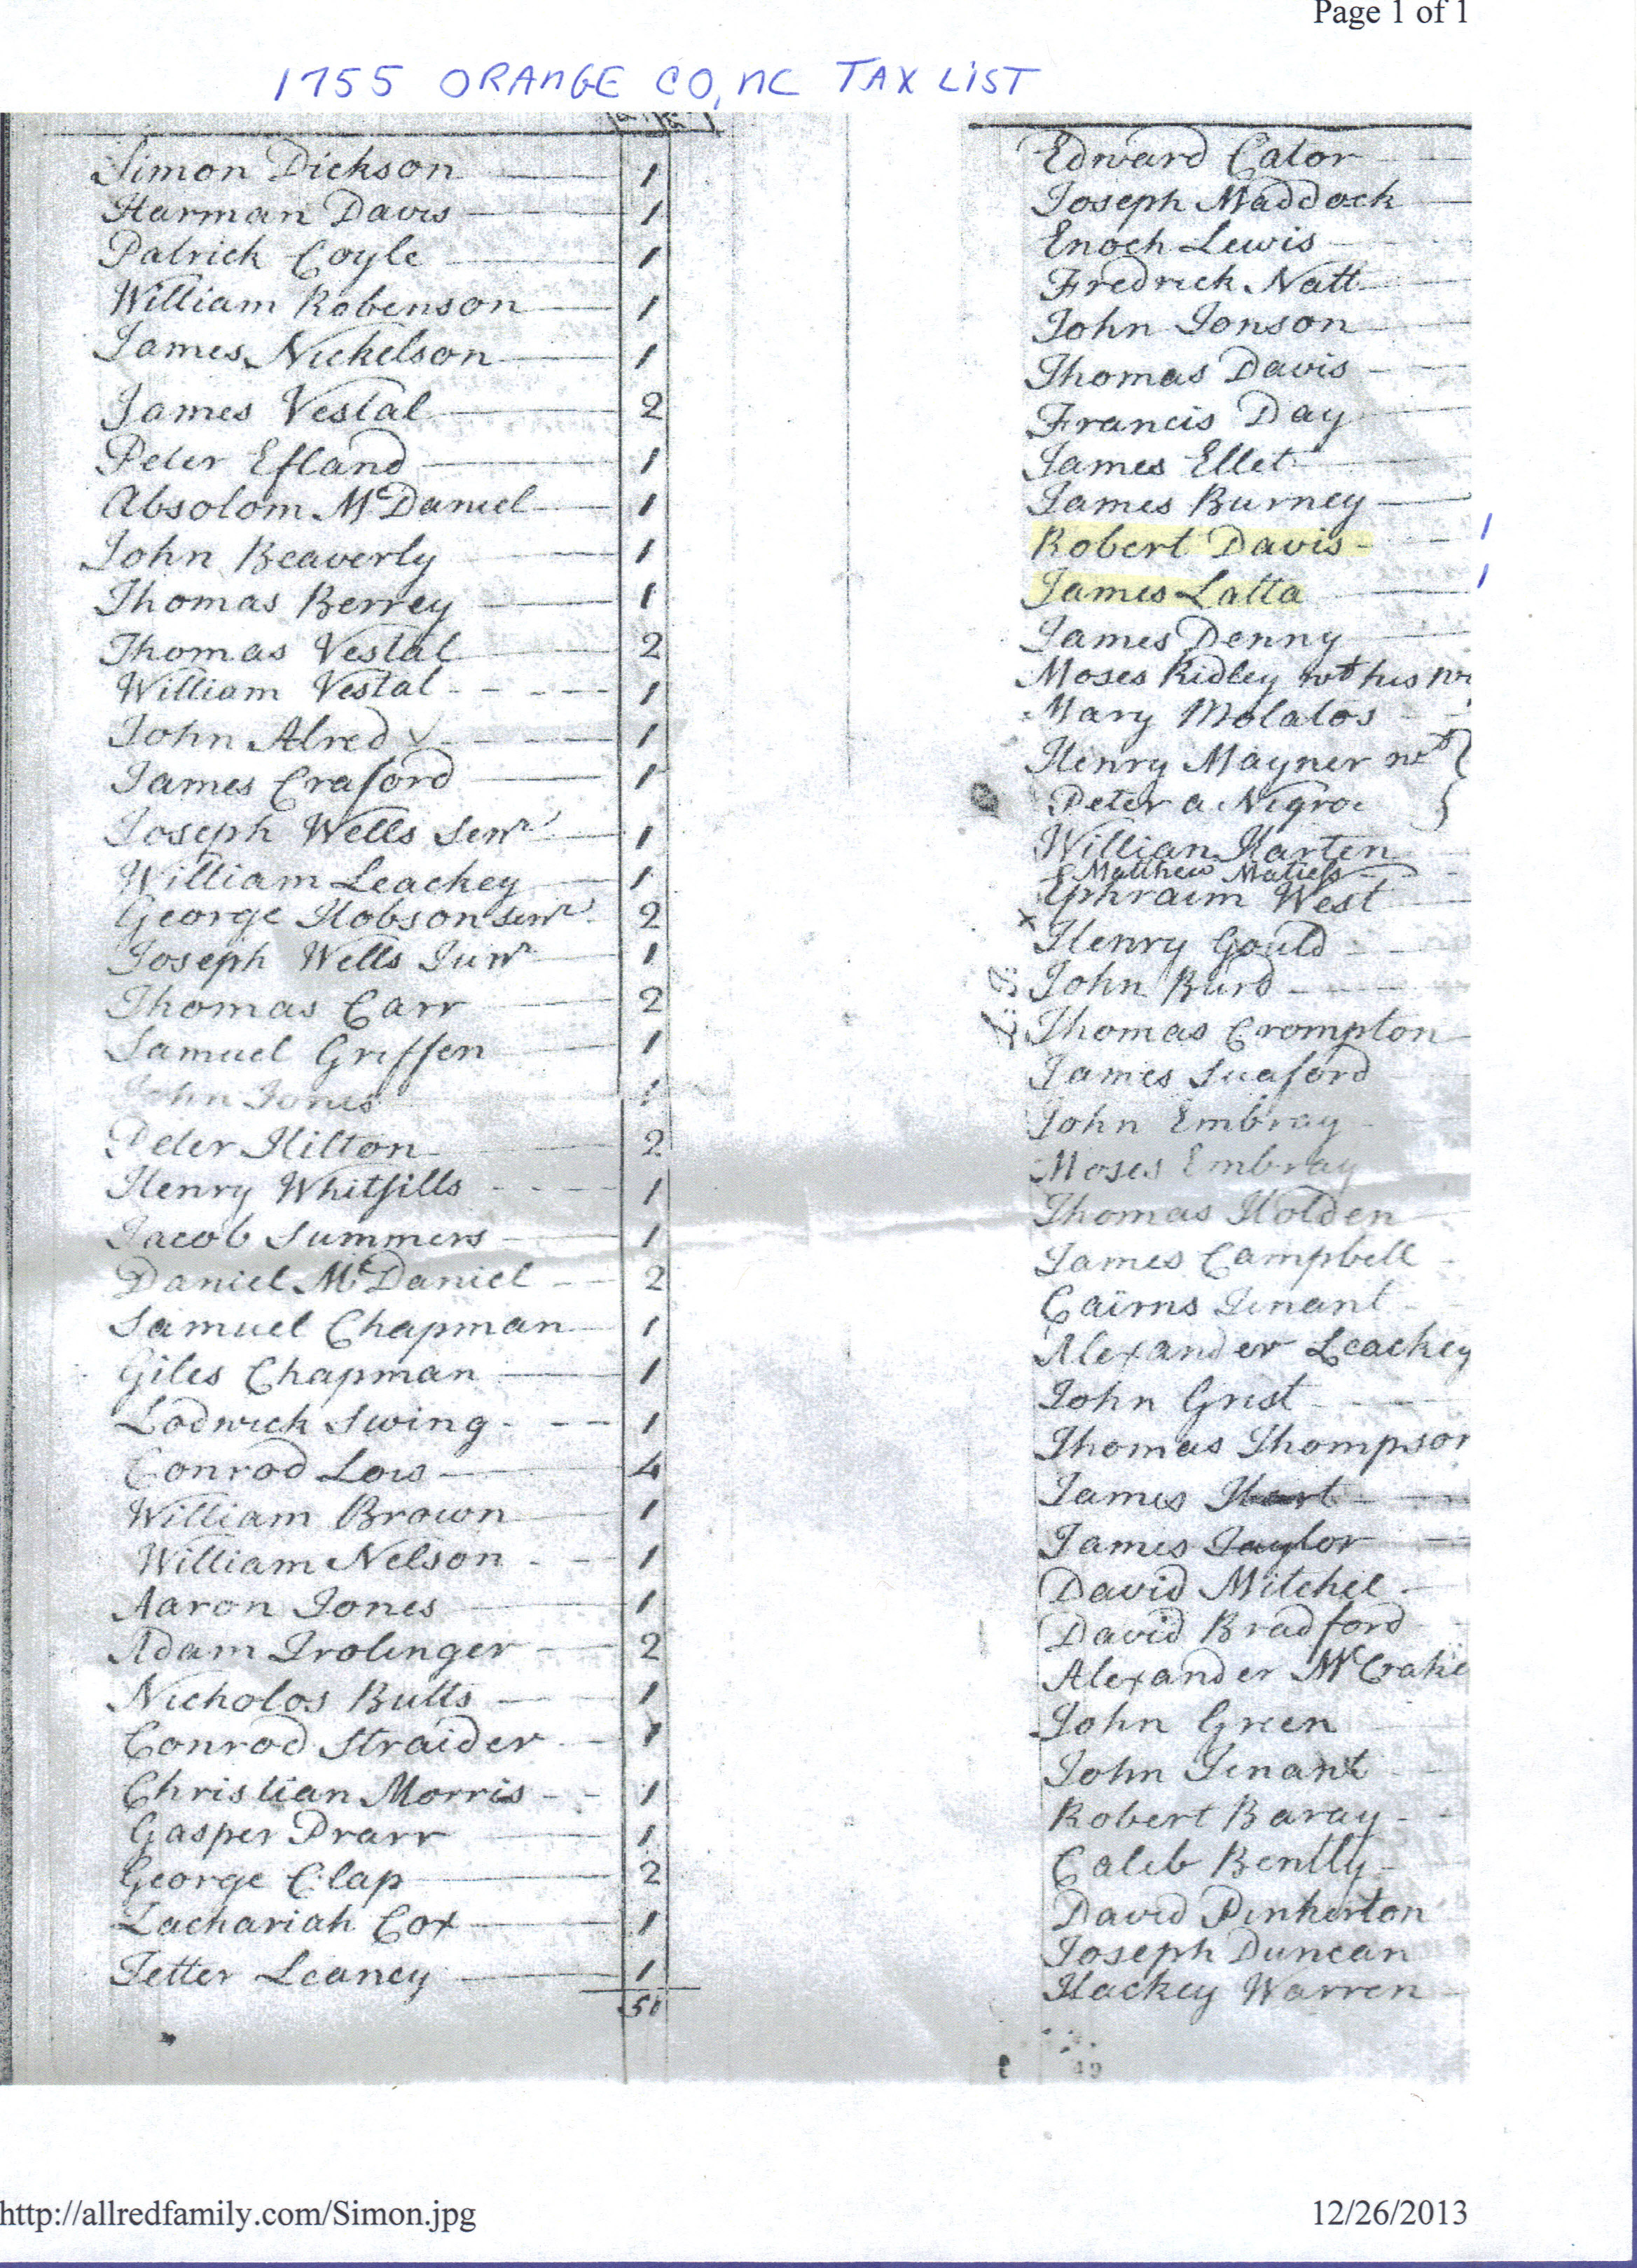 Page 1 of 1
1755 ORANGE CO, NC TAX LIST
Simon Dickson 1
Harman Davis 1
Patrick Coyle 1
William Robenson 1
James Nickelson 1
James Vestal 2
Peter Efland 1
Absolom McDaniel 1
John Beaverly 1
Thomas Berrey 1
Thomas Vestal 2
William Vestal 1
John Alred 1
James Craford 1
Joseph Wells Senr 1
William Leackey 1
George Hobson Senr 2
Joseph Wells Junr 1
Thomas Carr 2
Samuel Griffen 1
John Jones 1
Peter Hilton 2
Henry Whitsills 1
Jacob Summers 1
Daniel McDaniel 2
Samuel Chapman 1
Giles Chapman 1
Lodwick Swing 1
Conrod Lows 4
William Brown 1
William Nelson 1
Aaron Jones 1
Adam Trolinger 2
Nicholos Butts 1
Conrod Straider 1
Christian Morris 1
Gasper Prarr 1
George Clap 2
Zachariah Cox 1
Tetter Leaney 1
51
Edward Cator
Joseph Maddock
Enoch Lewis
Fredrick Natt
John Jonson
Thomas Davis
Francis Day
James Ellet
James Burney
Robert Davis 1
James Latta 1
James Denny
Moses Ridley wt his
Mary Molatos
Henry Mayner wt
Peter a Negroe
William Harten
Matthew
Ephraim West
Henry Gould
John Burd
Thomas Crompton
James Suaford
John Embray
Moses Embray
Thomas Holden
James Campbell
Cairns Tinant
Alexander Leackey
John Grist
Thomas Thompson
James Hart
James Taylor
David Mitchel
David Bradford
Alexander McCrake
John Green
John Tinant
Robert Baray
Caleb Bently
David Pinkerton
Joseph Duncan
Hackey Warren
49
http://allredfamily.com/Simon.jpg
12/26/2013